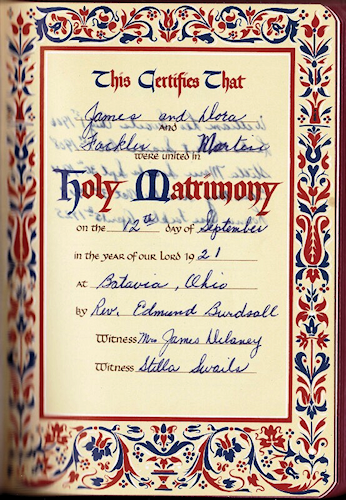 This Certifies That
James and Dora
AND
Fackler Martin
WERE UNITED IN
Holy Matrimony
on the 12th day of September
in the year of our Lord 1921
at Batavia, Ohio
by Rev. Edmund Burdsall
Witness Mrs James Delaney
Witness Stella Swails